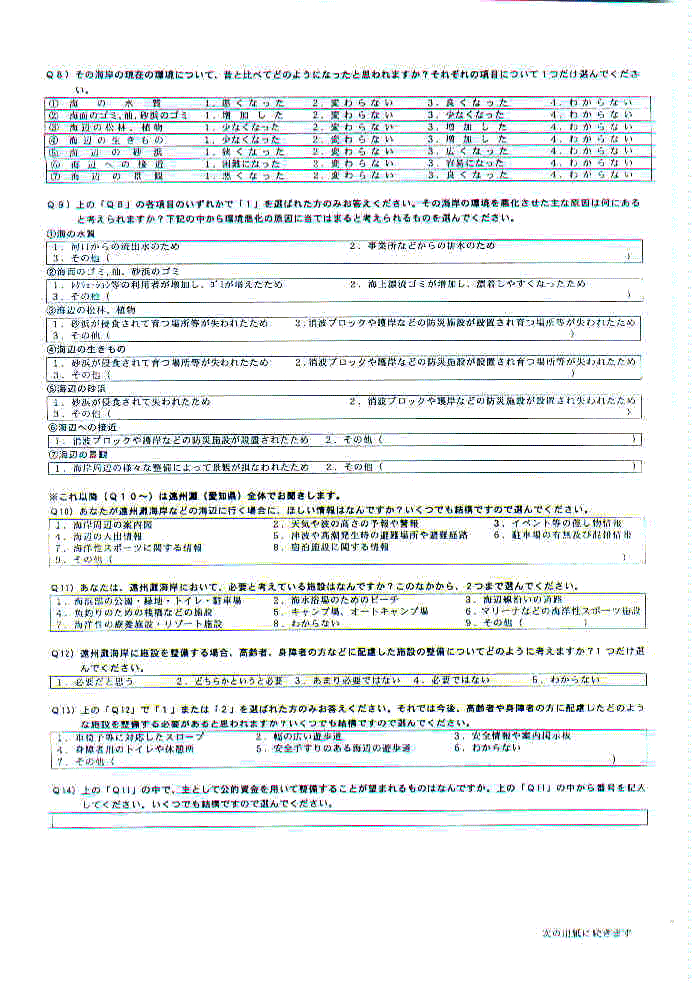 Q8) その海岸の現在の環境について、昔と比べてどのようになったと思われますか?それぞれの項目について1つだけ選んでくださ
い。
① 海の水質 1. 悪くなった 2. 変わらない 3. 良くなった 4. わからない
② 海面のゴミ,油,砂浜のゴミ 1. 増加した 2. 変わらない 3. 少なくなった 4. わからない
③ 海辺の松林、植物 1. 少なくなった 2. 変わらない 3. 増加した 4. わからない
④ 海辺の生きもの 1. 少なくなった 2. 変わらない 3. 増加した 4. わからない
⑤ 海辺の砂浜 1. 狭くなった 2. 変わらない 3. 広くなった 4. わからない
⑥ 海辺への接近 1. 困難になった 2. 変わらない 3. 容易になった 4. わからない
⑦ 海辺の景観 1. 悪くなった 2. 変わらない 3. 良くなった 4. わからない
Q9) 上の「Q8」の各項目のいずれかで「1」を選ばれた方のみお答えください。その海岸の環境を悪化させた主な原因は何にある
と考えられますか?下記の中から環境悪化の原因に当てはまると考えられるものを選んでください。
①海の水質
1. 河口からの流出水のため 2. 事業所などからの排水のため
3. その他 ( )
②海面のゴミ,油、砂浜のゴミ
1. レクリェーション等の利用者が増加し、ゴミが増えたため 2. 海上漂流ゴミが増加し、漂着しやすくなったため
3. その他 ( )
③海辺の松林、植物
1. 砂浜が侵食されて育つ場所等が失われたため 2.消波ブロックや護岸などの防災施設が設置され育つ場所等が失われたため
3. その他( )
④海辺の生きもの
1. 砂浜が侵食されて育つ場所等が失われたため 2.消波ブロックや護岸などの防災施設が設置され育つ場所等が失われたため
3. その他( )
⑤海辺の砂浜
1. 砂浜が侵食されて失われたため 2. 消波ブロックや護岸などの防災施設が設置され失われたため
3. その他( )
⑥海辺への接近
1. 消波ブロックや護岸などの防災施設が設置されたため 2. その他 ( )
⑦海辺の景観
1. 海岸周辺の様々な整備によって景観が損なわれたため 2. その他 ( )
※これ以降(Q10~)は遠州灘(愛知県)全体でお聞きします。
Q10) あなたが遠州灘海岸などの海辺に行く場合に、ほしい情報はなんですか?いくつでも結構ですので選んでください。
1. 海岸周辺の案内図 2. 天気や波の高さの予報や警報 3. イベント等の催し物情報
4. 海辺の人出情報 5. 津波や高潮発生時の避難場所や避難経路 6. 駐車場の有無及び混雑情報
7. 海洋性スポーツに関する情報 8. 宿泊施設に関する情報
9. その他 ( )
Q11) あなたは、遠州灘海岸において、必要と考えている施設はなんですか?このなかから、2つまで選んでください。
1. 海浜部の公園・緑地・トイレ・駐車場 2. 海水浴場のためのビーチ 3. 海辺線沿いの道路
4. 魚釣りのための桟橋などの施設 5. キャンプ場、オートキャンプ場 6. マリーナなどの海洋性スポーツ施設
7. 海洋性の療養施設・リゾート施設 8. わからない 9. その他 ( )
Q12) 遠州灘海岸に施設を整備する場合、高齢者、身障者の方などに配慮した施設の整備についてどのように考えますか?1つだけ選
んでください。
1. 必要だと思う 2. どちらかというと必要 3. あまり必要ではない 4. 必要ではない 5. わからない
Q13) 上の「Q12」で「1」または「2」を選ばれた方のみお答えください。それでは今後、高齢者や身障者の方に配慮したどのよう
な施設を整備する必要があると思われますか?いくつでも結構ですので選んでください。
1. 車椅子等に対応したスロープ 2. 幅の広い遊歩道 3. 安全情報や案内掲示板
4. 身障者用のトイレや休憩所 5. 安全手すりのある海辺の遊歩道 6. わからない
7. その他( )
Q14) 上の「Q11」の中で、主として公的資金を用いて整備することが望まれるものはなんですか。上の「Q11」の中から番号を記入
してください。いくつでも結構ですので選んでください。
次の用紙に続きます